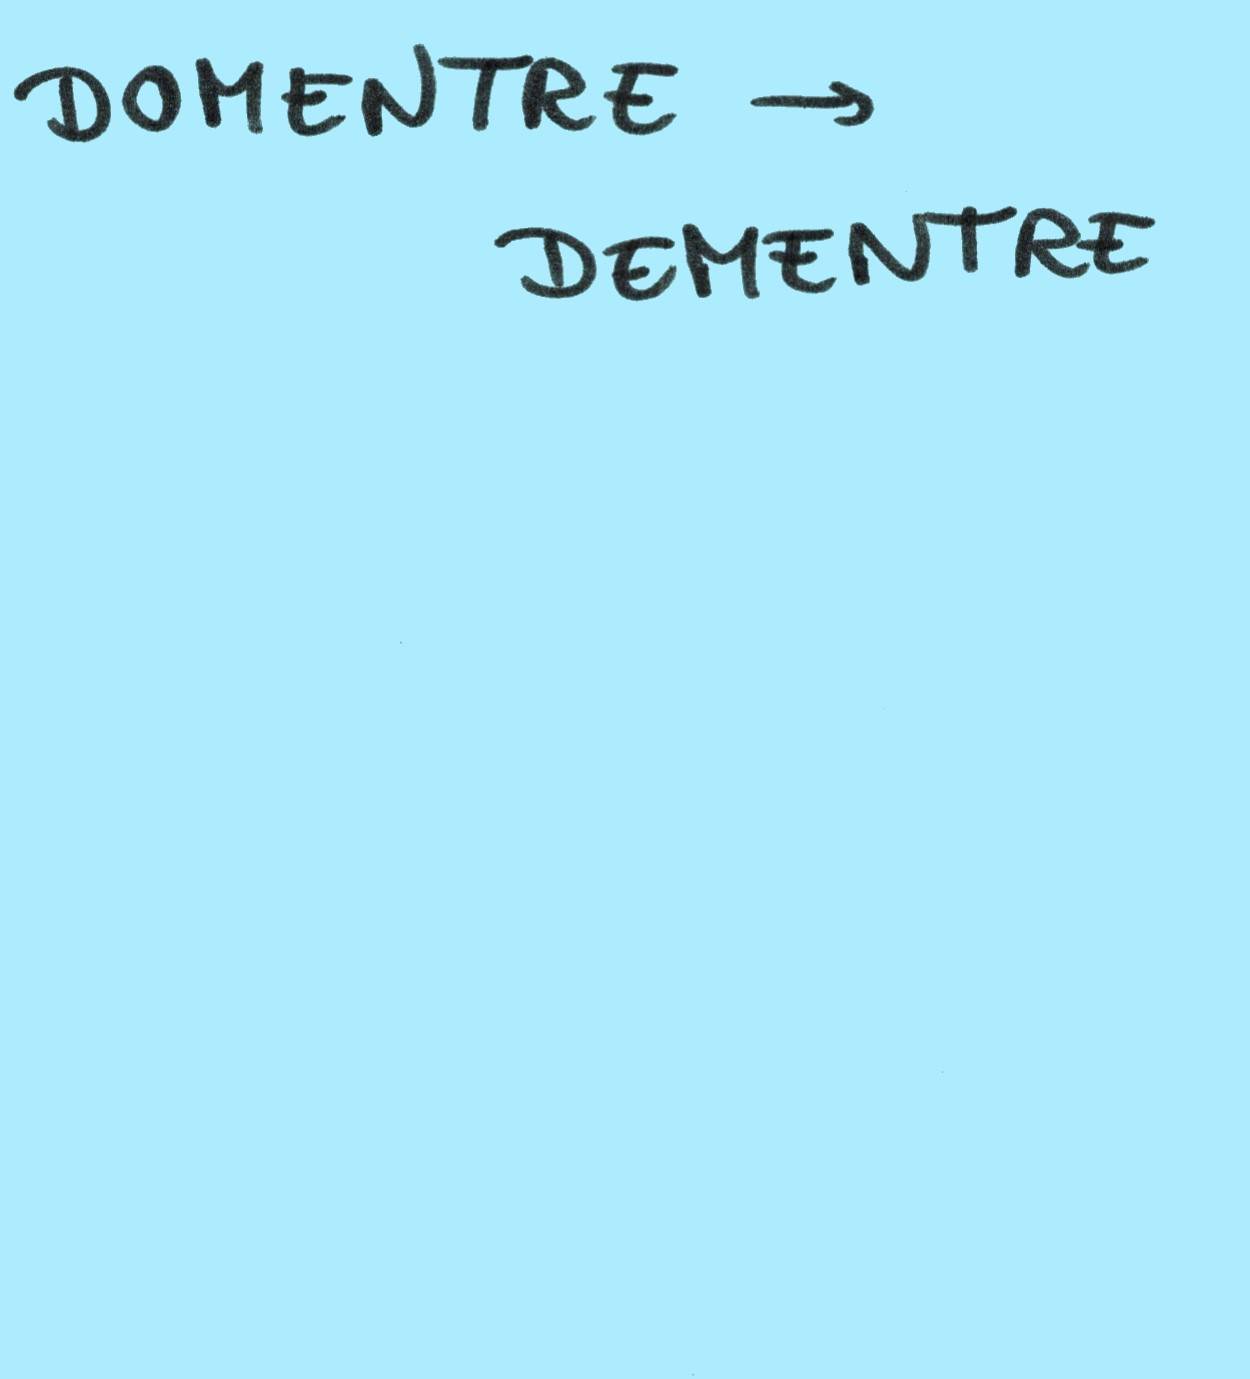 DOMENTRE →
DEMENTRE